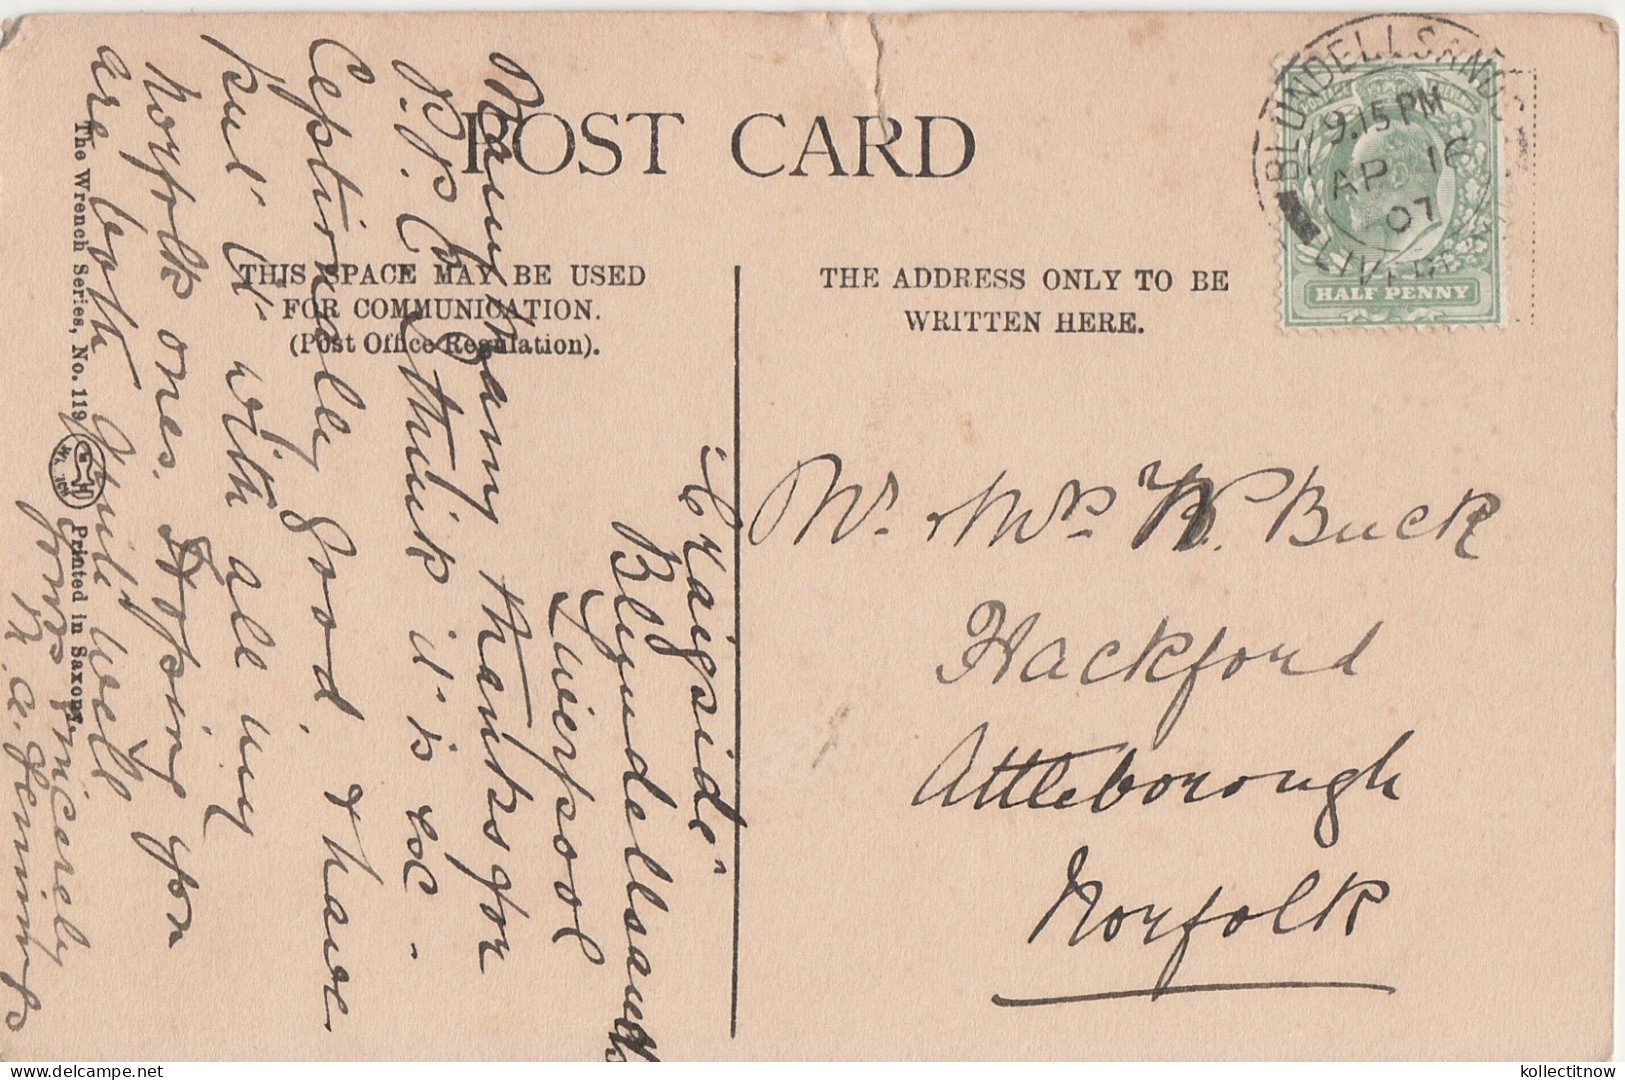 POST CARD
THIS SPACE MAY BE USED
FOR COMMUNICATION.
(Post Office Regulation).
THE ADDRESS ONLY TO BE
WRITTEN HERE.
BLUNDELLSANDS
9.15 PM
AP 16
07
LIVERP
HALF PENNY
"Craigside"
Blundellsands
Liverpool
Many many thanks for
P.P.C. I think it is ex-
ceptionally good. & have
put it with all my
Norfolk ones. Hoping you
are both quite well
yours sincerely
Mr. & Mrs W. Buck
Hackford
Attleborough
Norfolk
The Wrench Series, No. 119
Printed in Saxony
kollectitnow